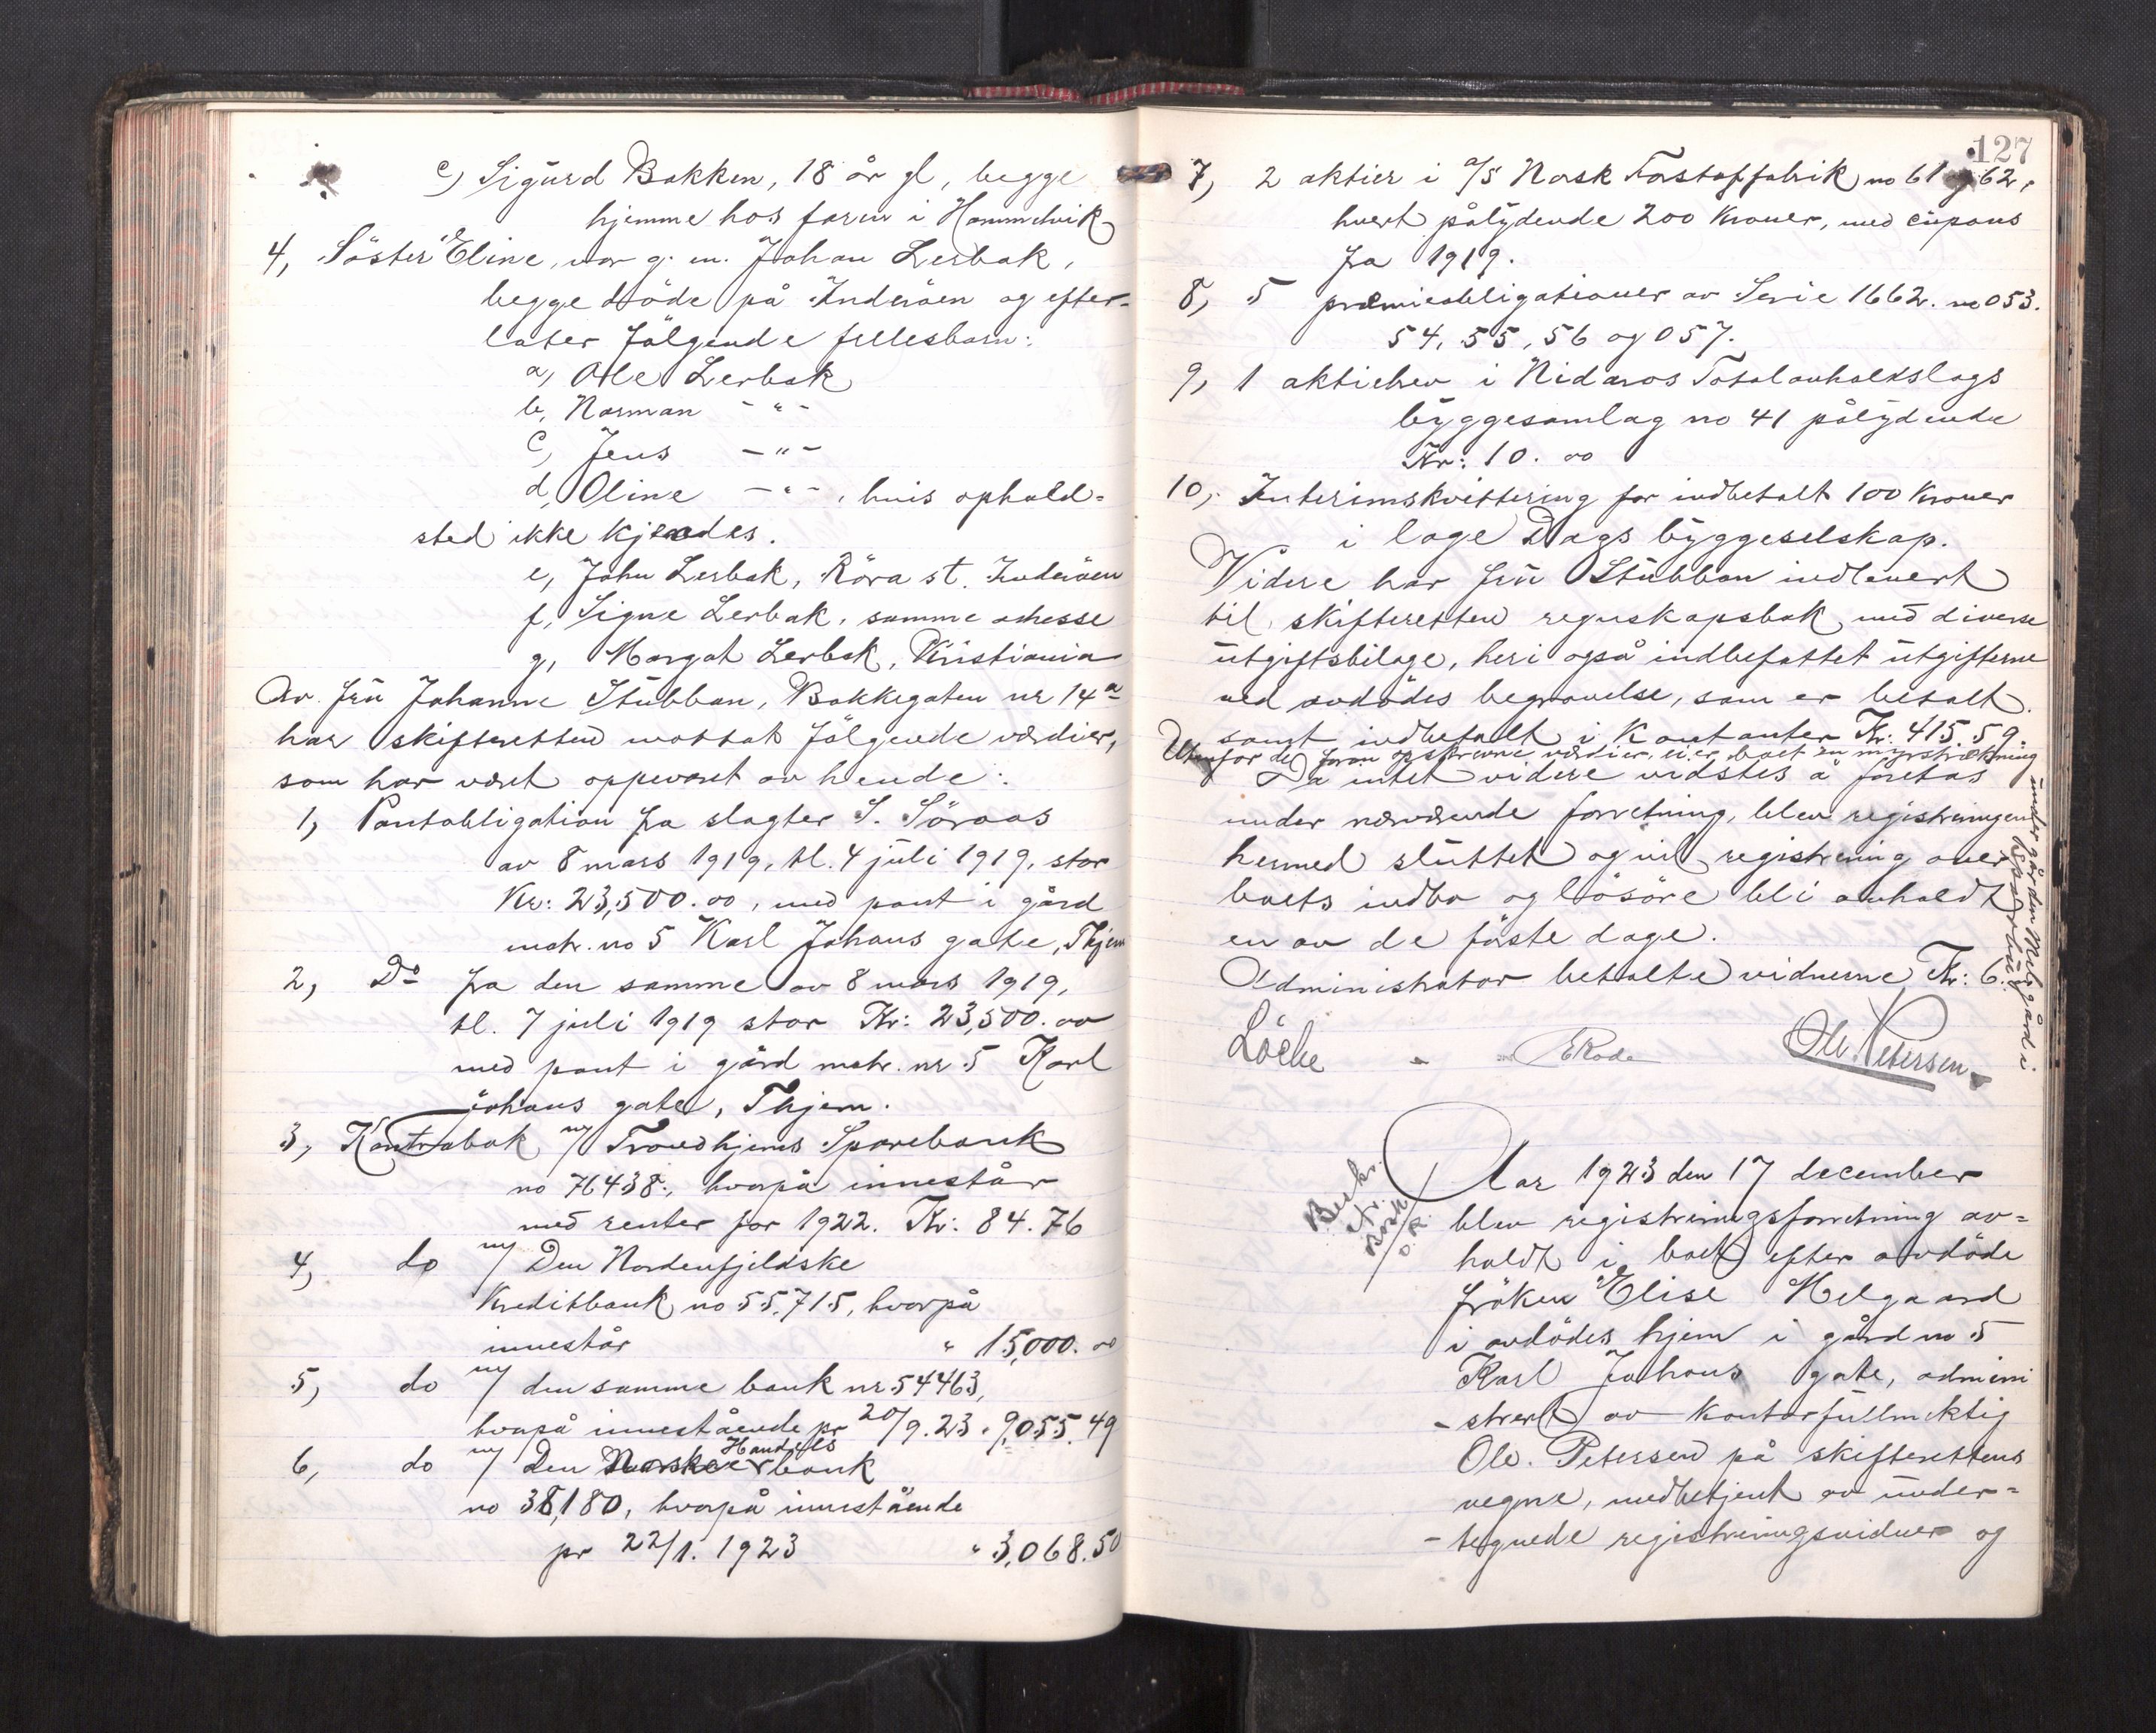 c) Sigurd Bakken, 18 år gl, begge
hjemme hos faren i Hommelvik
4, Söster Eline, var g. m. Johan Lerbak,
begge döde på Inderöen og efter-
later fölgende fellesbarn:
a, Ole Lerbak
b, Norman - " -
c, Jens - " -
d, Oline - " - , hvis ophold=
sted ikke kjendes.
e, John Lerbak, Röra st. Inderöen
f, Signe Lerbak, samme adresse
g, Margot Lerbak, Kristiania
Av fru Johanne Stubban, Bakkegaten nr 14a
har skifteretten mottat fölgende værdier,
som har været oppevaret av hende:
1, Pantobligation fra slagter S. Söraas
av 8 mars 1919, tl. 4 juli 1919, stor
Kr: 23,500.00, med pant i gård
matr. no 5 Karl Johans gate, Thjem
2, Do fra den samme av 8 mars 1919,
tl. 7 juli 1919 stor Kr: 23,500.00
med pant i gård matr. nr 5 Karl
Johans gate, Thjem.
3, Kontrabok m/ Trondhjems Sparebank
no 76438, hvorpå innestår
med renter for 1922. Kr: 84.76
4, do m/ Den Nordenfjeldske
Kreditbank no 55,715, hvorpå
innestår " 15,000.00
5, do m/ den samme bank nr 54463,
hvorpå innestående pr 20/9.23 " 9,055.49
Handels
6, do m/ Den Norske bank
no 38,180, hvorpå innestående
pr 22/1. 1923 " 3,068.50
127
7, 2 aktier i a/s Norsk Torstoffabrik no 61 og 62,
hvert pålydende 200 Kroner, med cupons
fra 1919.
8, 5 præmieobligationer av Serie 1662. no 053.
54, 55, 56 og 057.
9, 1 aktiebrev i Nidaros Totalavholdslags
byggesamlag no 41 pålydende
Kr: 10.00
10, Interimskvittering for indbetalt 100 Kroner
i loge Dags byggeselskap.
Videre har fru Stubban indlevert
til skifteretten regnskapsbok med diverse
utgiftsbilage, heri også indbefattet utgifterne
ved avdödes begravelse, som er betalt
samt indbetalt i kontanter Kr. 415.59.
Utenfor de foran opskrevne værdier, eier boet en myrstrækning
under gården Melgård i
Da intet videre vidstes å foretas
under nærværende forretning, blev registreringen
hermed sluttet og vil registrering over
boets indbo og lösöre bli avholdt
en av de förste dage.
Administrator betalte vidnerne Kr: 6.
Löche - ERode Ole. Petersen
Aar 1923 den 17 december
blev registreringsforretning av=
holdt i boet efter avdöde
fröken Elise Melgaard
i avdödes hjem i gård no 5
Karl Johans gate, admini
- strert av kontorfullmektig
Ole. Petersen på skifterettens
vegne, medbetjent av under=
- tegnede registreringsvidner og